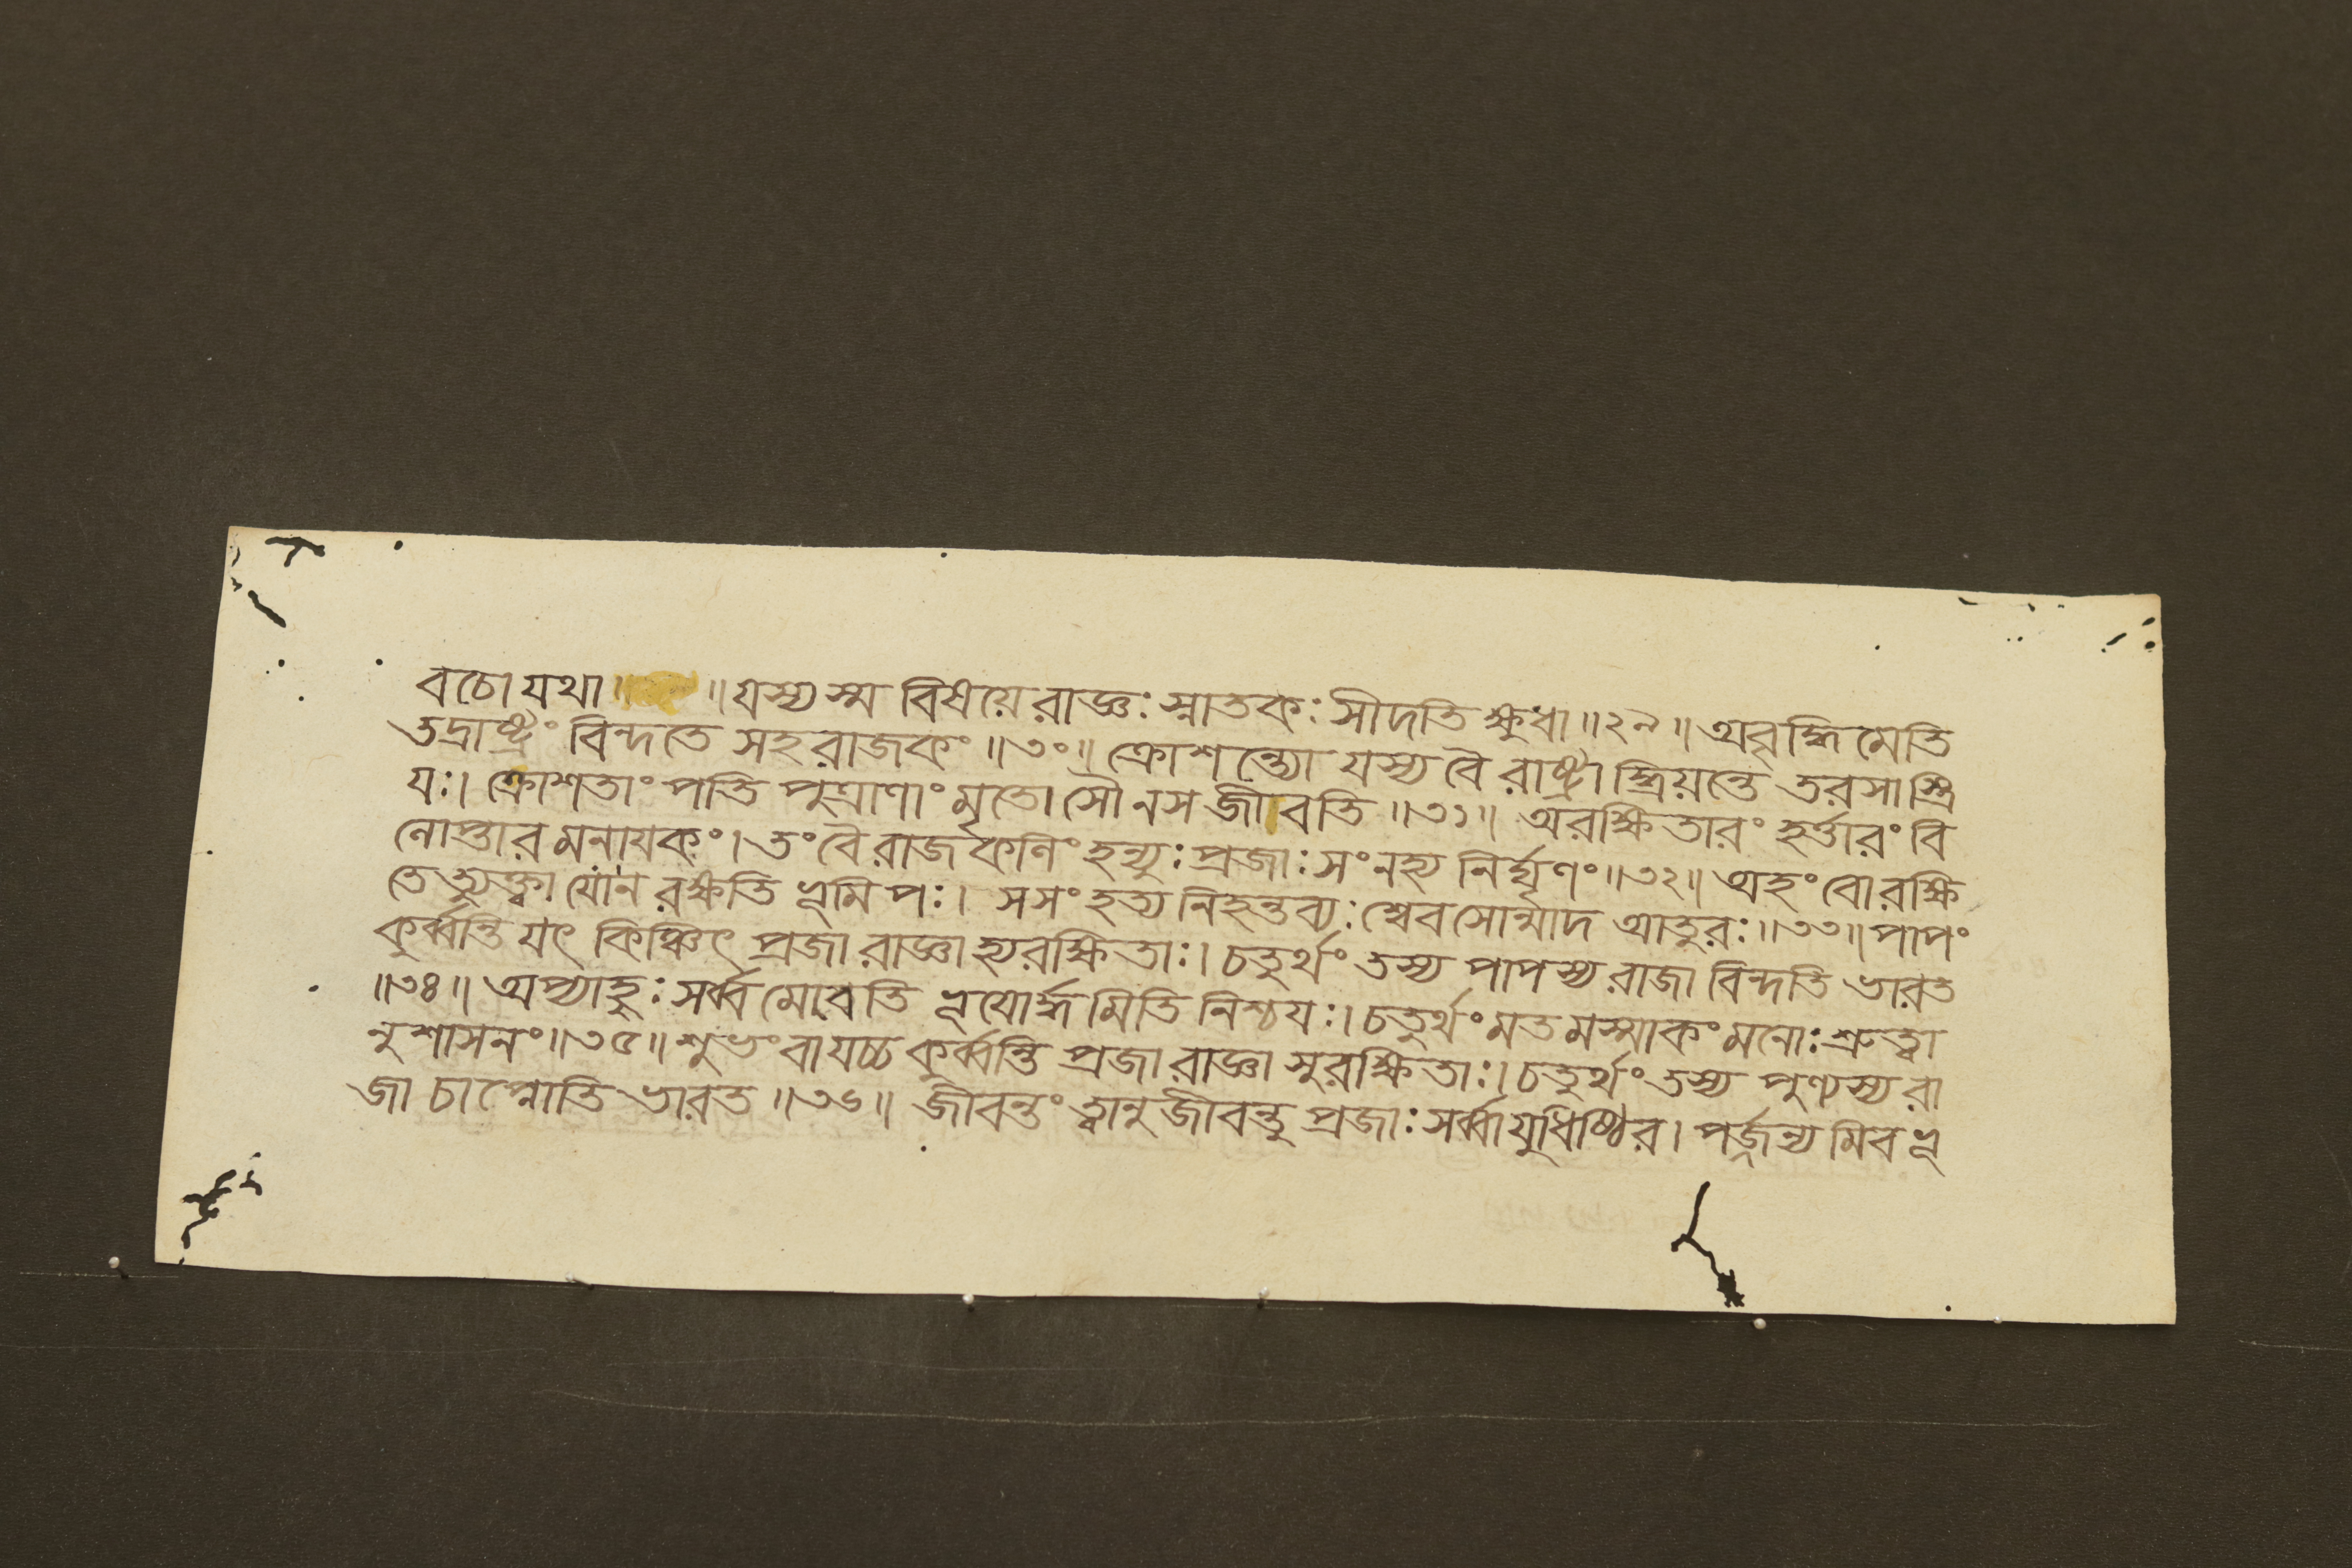 বচো যথা॥ ॥যস্য স্ম বিষয়ে রাজ্ঞঃ স্নাতকঃ সীদতি ক্ষুধা॥২৯॥ অবৃদ্ধিমেতি
তদ্রাষ্ট্রং বিন্দতে সহরাজকং॥৩০॥ ক্রোশন্ত্যো যস্য বৈ রাষ্ট্রাদ্ধ্রিয়ন্তে তরসা স্ত্রি
যঃ। ক্রোশতাং পতিপুত্রাণাং মৃতো সৌ ন স জীবতি॥৩১॥ অরক্ষিতারং হর্ত্তারং বি
লোপ্তারমনায়কং। তং বৈ রাজকলিং হন্যুঃ প্রজাঃ সংনহ্য নির্ঘৃণং॥৩২॥ অহং বো রক্ষি
তেত্যুক্ত্বা যো ন রক্ষতি ভূমিপঃ। স সংহত্য নিহন্তব্যঃ শ্বেব সোন্মাদ আতুরঃ॥৩৩॥ পাপং
কুর্ব্বন্তি যৎ কিঞ্চিৎ প্রজা রাজ্ঞা হ্যরক্ষিতাঃ। চতুর্থং তস্য পাপস্য রাজা বিন্দতি ভারত
॥৩৪॥ অপ্যাহুঃ সর্ব্বমেবেতি ভূয়োর্দ্ধমিতি নিশ্চয়ঃ। চতুর্থং মতমস্মাকং মনোঃ শ্রুত্বা
নুশাসনং॥৩৫॥ শুভং বা যচ্চ কুর্ব্বন্তি প্রজা রাজ্ঞা সুরক্ষিতাঃ। চতুর্থং তস্য পুণ্যস্য রা
জা চাপ্নোতি ভারত॥৩৬॥ জীবন্তং ত্বানুজীবন্তু প্রজাঃ সর্ব্বা যুধিষ্ঠির। পর্জ্জন্যমিব ভূ